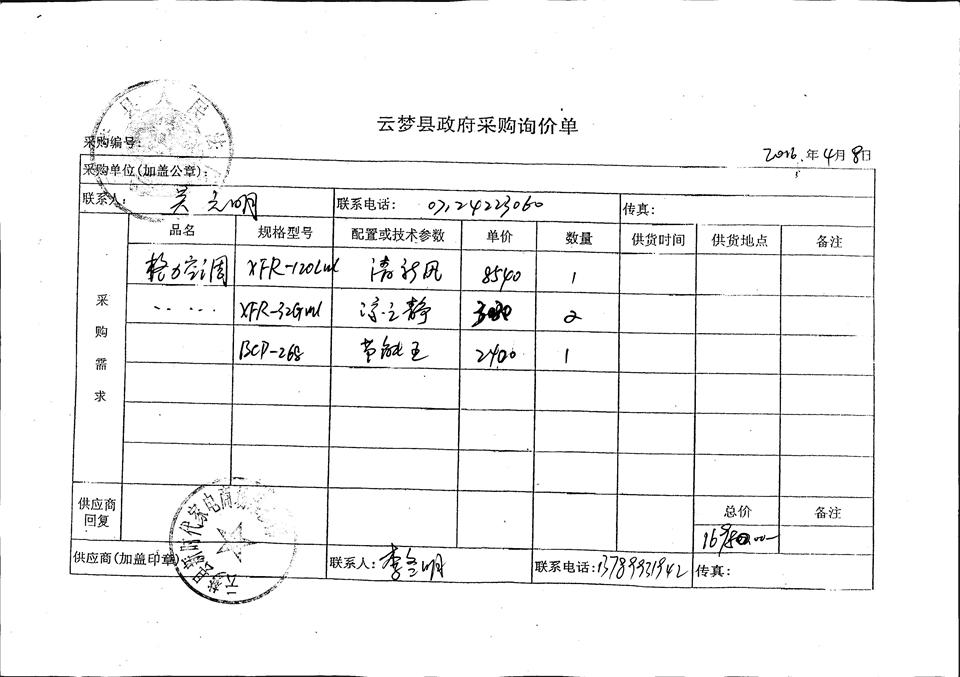 云梦县政府采购询价单
采购编号:
2016.年4月8日
采购单位(加盖公章):
联系人: 吴 明
联系电话: 0712 4223060
传真:
采购需求
品名 规格型号 配置或技术参数 单价 数量 供货时间 供货地点 备注
格力空调 清新风 8540 1
凉之静 2
BCD-268 节能王 2400 1
供应商回复
总价 备注
供应商(加盖印章)
联系人: 李 明
联系电话: 13789931942
传真: